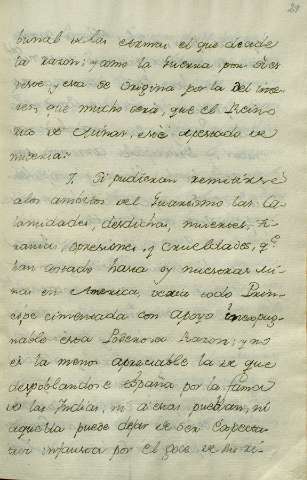 29
bunal de las Armas el que decide
la razon: y como la Guerra por
esta se origina por la del
que mucho será, que el Reino
de Minas, esté apestado de
miseria.
7. Si pudieran remitirse
a los ambitos del Guarismo las Ca
lamidades, desdichas, muertes,
ranias, opresiones, y crueldades, qe.
han cosado hasta oy nuestras Mi
nas en America, veria todo Prin
cipe cimentada con apoyo inexpug
nable esta Potencosa Razon: y no
es la menos apreciable la de que
despoblandose España por la fama
de las Indias, ni a estas pueblan, ni
aquella puede dejar de ser
por el goze de mi